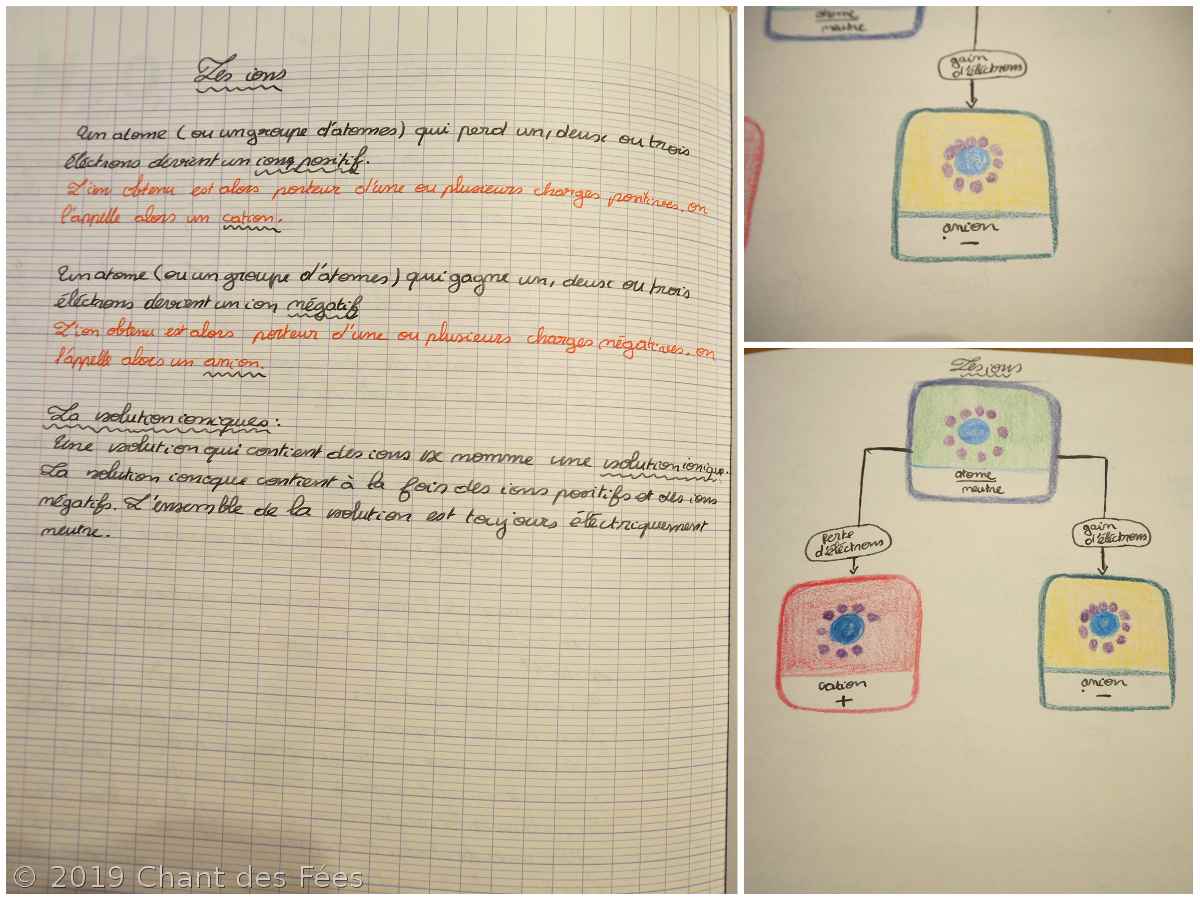 Les ions
Un atome (ou un groupe d'atomes) qui perd un, deux ou trois
éléctrons devient un ions positif.
L'ion obtenu est alors porteur d'une ou plusieurs charges positives. on
l'appelle alors un cation.
Un atome (ou un groupe d'atomes) qui gagne un, deux ou trois
éléctrons devient un ion négatif
L'ion obtenu est alors porteur d'une ou plusieurs charges négatives. on
l'appelle alors un anion.
La solution ioniques :
Une solution qui contient des ions se nomme une solution ionique.
La solution ionique contient à la fois des ions positifs et des ions
négatifs. L'ensemble de la solution est toujours éléctriquement
neutre.
© 2019 Chant des Fées
atome
neutre
gain
d'éléctrons
anion
–
Les ions
atome
neutre
perte
d'éléctrons
gain
d'éléctrons
cation
+
anion
–